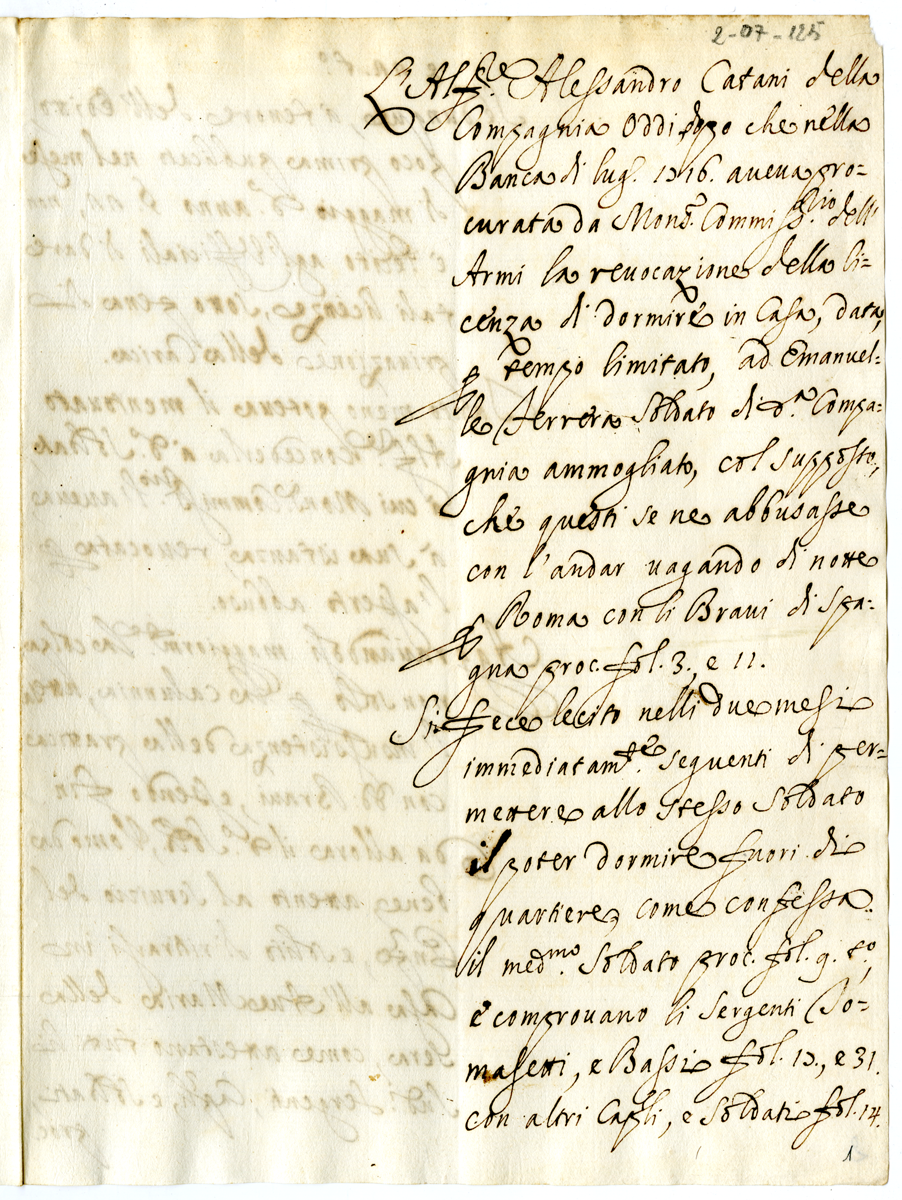 2-07-125
L'Alf.re Alessandro Catani della
Compagnia Oddi, dopo che nella
Banca di lug. 1716. aveva pro-
curata da Mons.r Commiss.rio dell'
Armi la revocazione della li-
cenza di dormire in Casa, data,
p tempo limitato, ad Emanuel-
le Ferrera Soldato di d.a Compa-
gnia ammogliato, col supposto,
che questi se ne abbusasse
con l'andar vagando di notte
p Roma con li Bravi di Spa-
gna proc. fol. 3., e 11.
Si fece lecito nelli due mesi
immediatam.te seguenti di per-
mettere allo stesso Soldato
il poter dormire fuori di
quartiere, come confessa
il med.mo Soldato proc. fol. 9. t.o,
e comprovano li Sergenti To-
masetti, e Bassi fol. 17., e 31.
con altri Cap.li, e Soldati fol. 14.
1